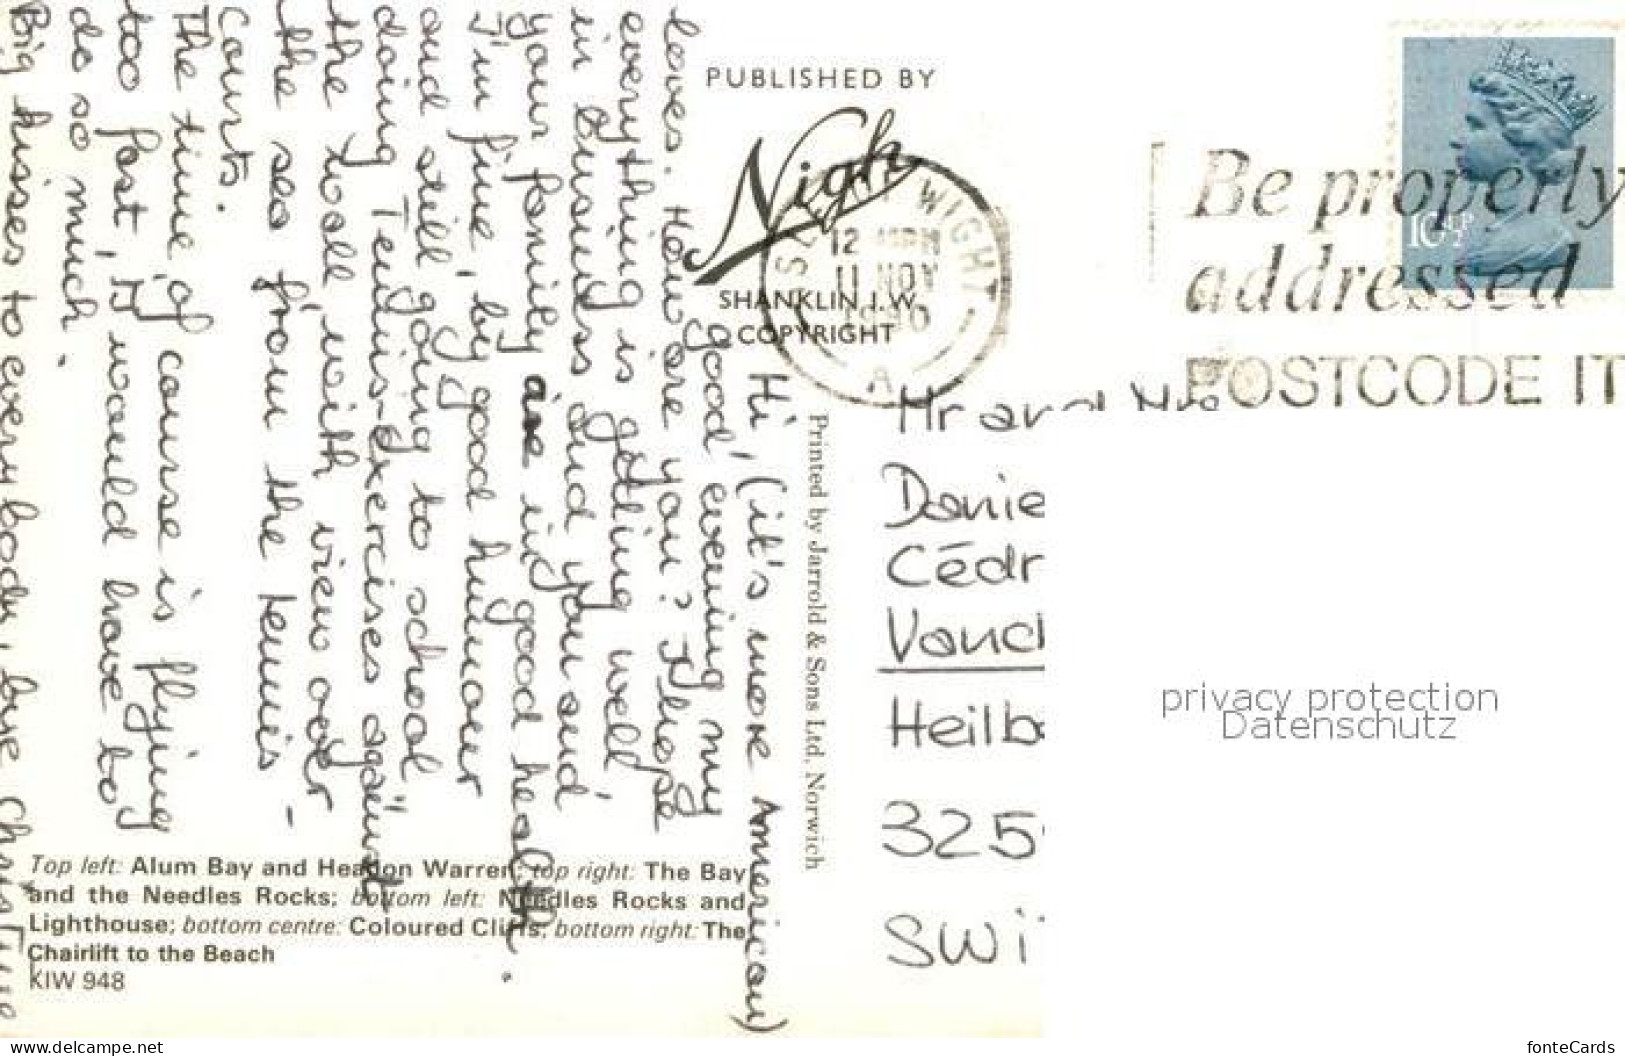 Hi, (it's more American)
good evening my
loves. How are you? I hope
everything is getting well
in business and you and
your family are in good health.
I'm fine, by good humour
and still going to school
doing Tennis-Exercises against
the wall with view over
the sea from the tennis-
Courts.
The time of course is flying
too fast, I would have to
do so much.
Big kisses to everybody, bye Christine
PUBLISHED BY
Nigh
SHANKLIN I.W.
COPYRIGHT
Printed by Jarrold & Sons Ltd, Norwich
WIGHT
12
11 NOV
1980
A
Be properly
addressed
POSTCODE IT
10½P
Mr and Mrs
Danie
Cédr
Vauch
Heilb
325
SWi
privacy protection
Datenschutz
Top left: Alum Bay and Headon Warren; top right: The Bay
and the Needles Rocks; bottom left: Needles Rocks and
Lighthouse; bottom centre: Coloured Cliffs; bottom right: The
Chairlift to the Beach
KIW 948
www.delcampe.net
fonteCards